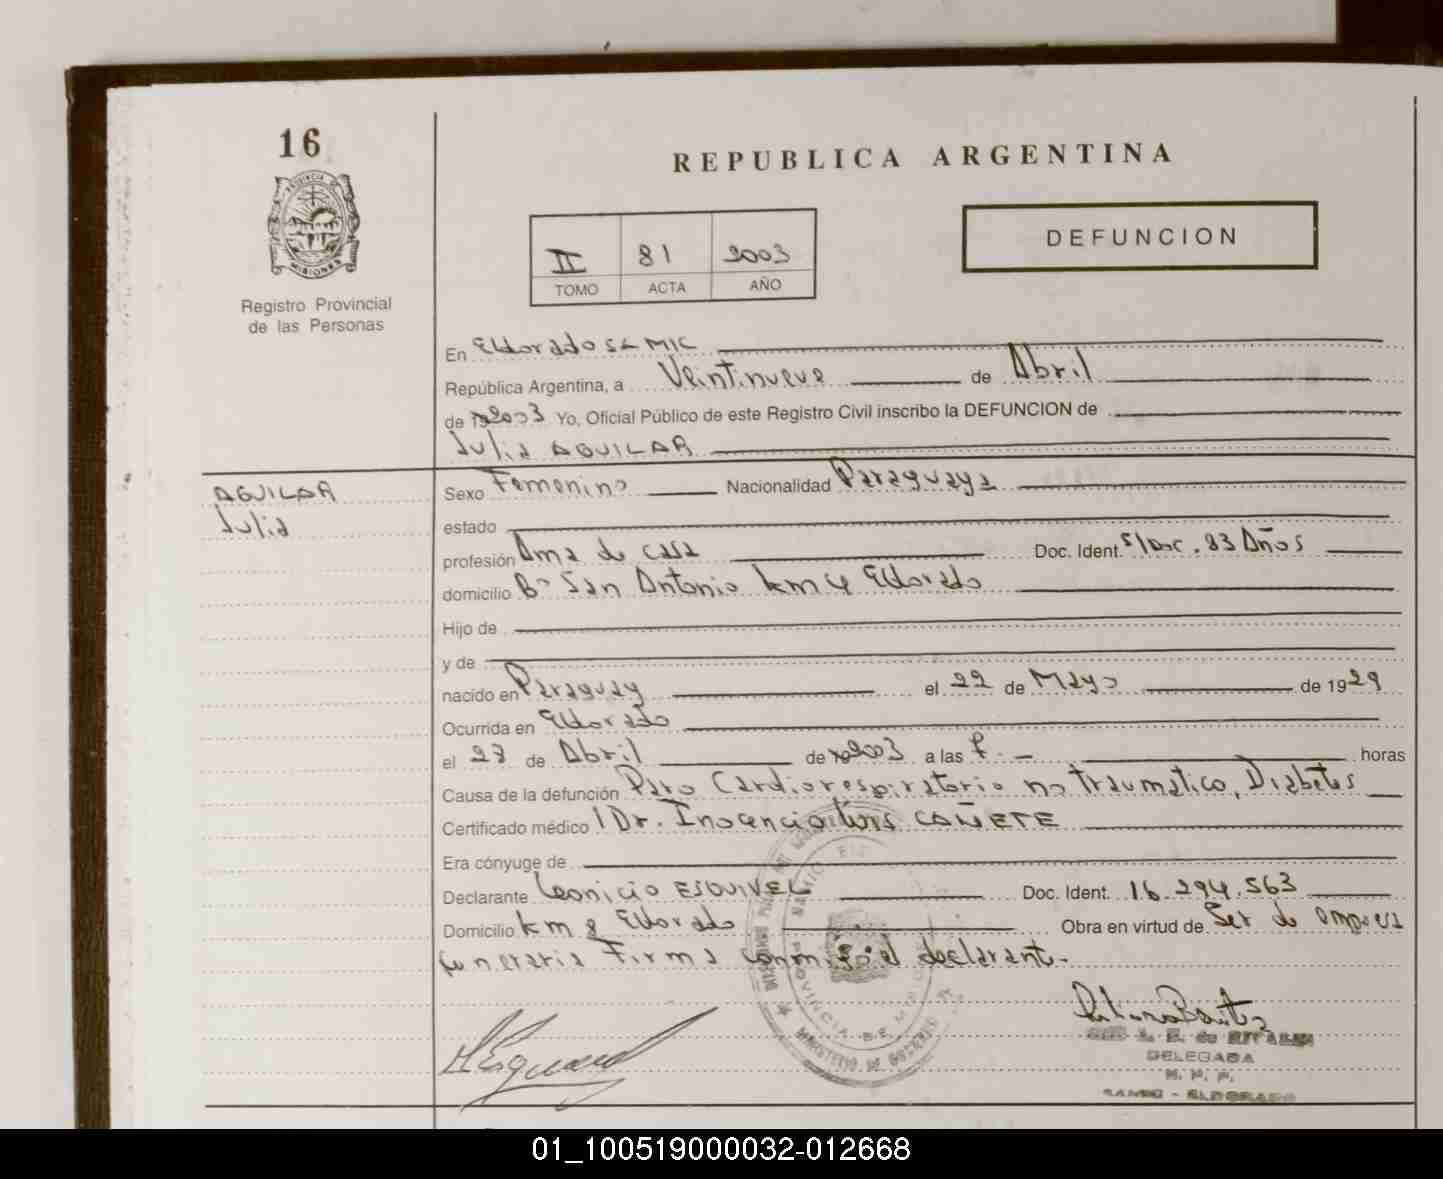 16
REPUBLICA ARGENTINA
PROVINCIA DE
MISIONES
Registro Provincial
de las Personas
DEFUNCION
II 81 2003
TOMO ACTA AÑO
En Eldorado
República Argentina, a Veintinueve de Abril
de 2003 Yo, Oficial Público de este Registro Civil inscribo la DEFUNCION de
Julia AGUILAR
AGUILAR
Julia
Sexo Femenino Nacionalidad Paraguaya
estado
profesión Ama de casa Doc. Ident. S/Doc. 83 Años
domicilio B° San Antonio km 4 Eldorado
Hijo de
y de
nacido en Paraguay el 22 de Mayo de 1929
Ocurrida en Eldorado
el 27 de Abril de 2003 a las horas
Causa de la defunción Paro Cardiorespiratorio no traumatico, Diabetes
Certificado médico Dr. Inocencio CAÑETE
Era cónyuge de
Declarante Leonicio ESQUIVEL Doc. Ident. 16.294.563
Domicilio km 8 Eldorado Obra en virtud de Ser de empresa
funeraria Firma conmigo el declarant.-
PROVINCIA DE MISIONES
MINISTERIO DE GOBIERNO
DELEGADA
R. P. P.
ELDORADO
01_100519000032-012668